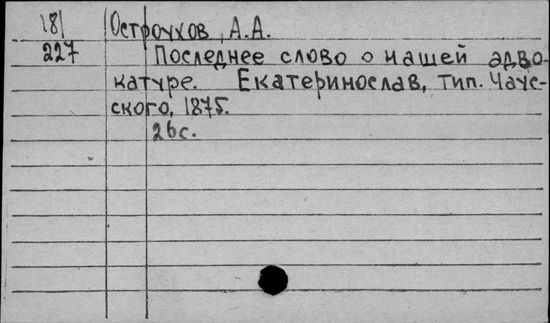 181 Остроухов, А.А.
227 Последнее слово о нашей адво-
катуре. Екатеринослав, тип. Чаус-
ского, 1875.
26с.